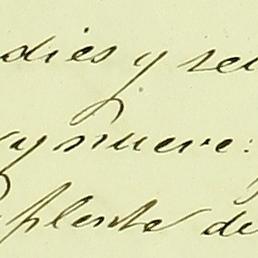 dies y se
y nueve:
plente de